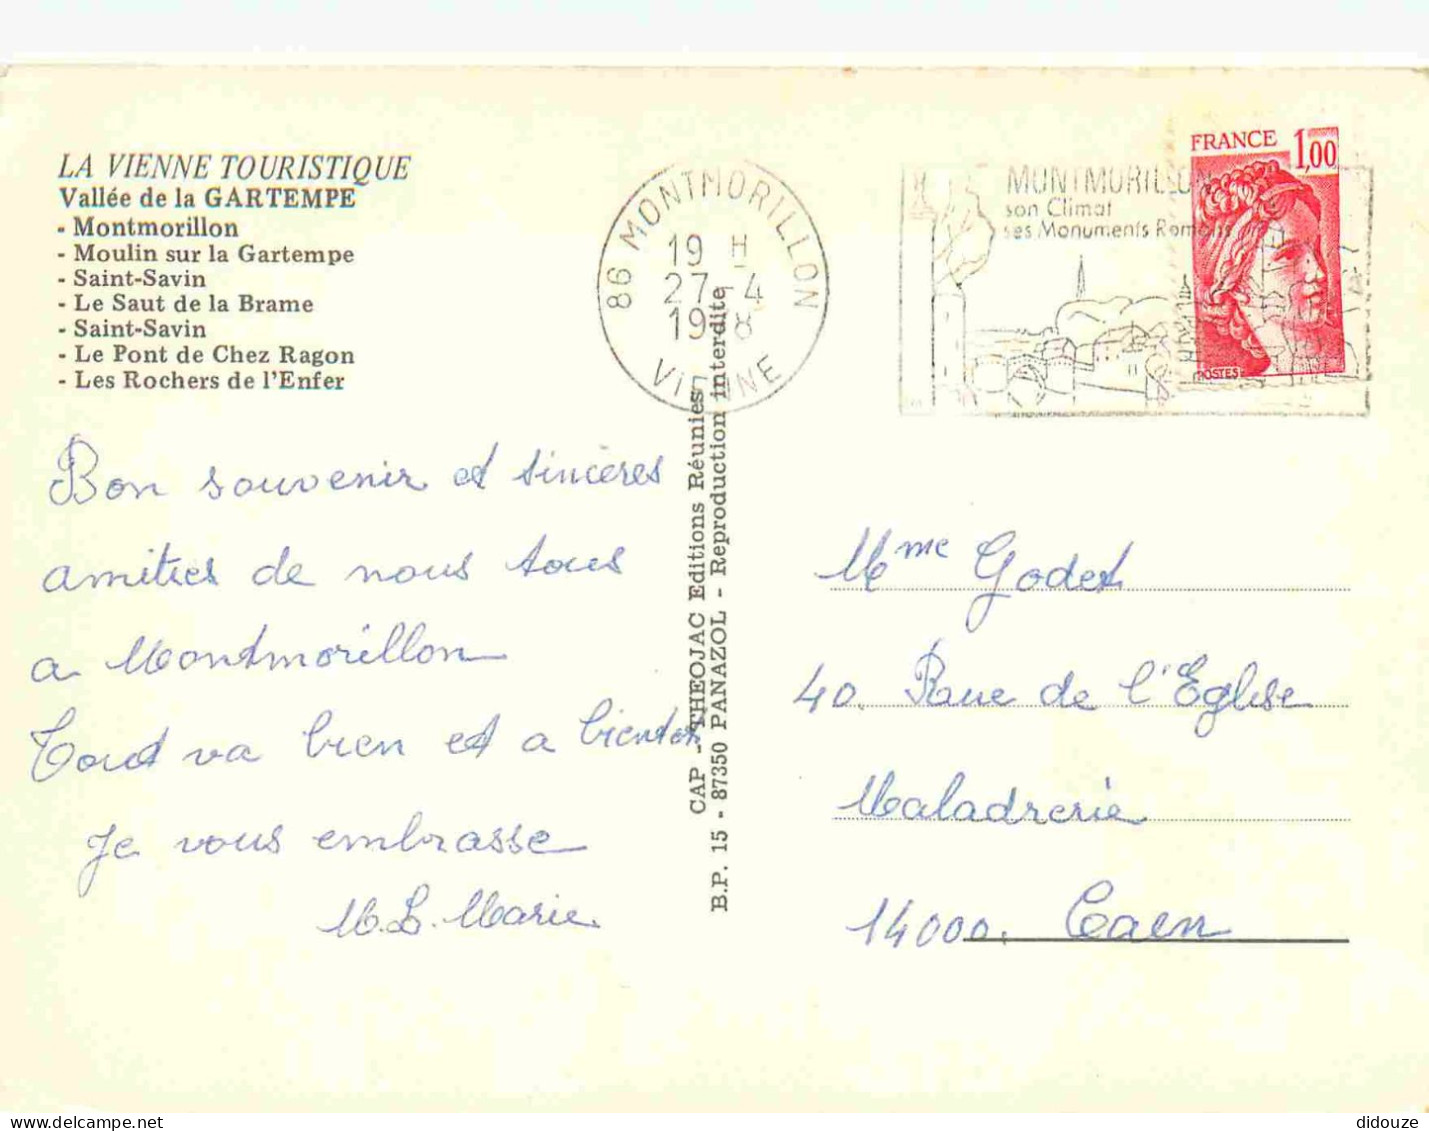 LA VIENNE TOURISTIQUE
Vallée de la GARTEMPE
- Montmorillon
- Moulin sur la Gartempe
- Saint-Savin
- Le Saut de la Brame
- Saint-Savin
- Le Pont de Chez Ragon
- Les Rochers de l'Enfer
86 MONTMORILLON
19 H
27-4
1978
VIENNE
MONTMORILLON
son Climat
ses Monuments Romans
FRANCE 1,00
POSTES
Bon souvenir et sincères
amities de nous tous
a Montmorillon
Tout va bien et a bientot
Je vous embrasse
M.L. Marie
CAP - THEOJAC Editions Réunies
B.P. 15 - 87350 PANAZOL - Reproduction interdite
Mme Godet
40. Rue de l'Eglise
Maladrerie
14000. Caen
didouze